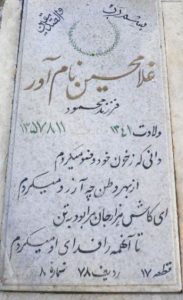 غلامحسین نام آور
فرزند محمود
ولادت ۱۳۴۱
دانی که زخون خود وضو میکردم
از بهر وطن چه آرزو میکردم
ای کاش هزار جان مرا بود به تن
تا آنهمه را فدای او میکردم
قطعه ۱۷ ردیف ۷۸ شماره ۸